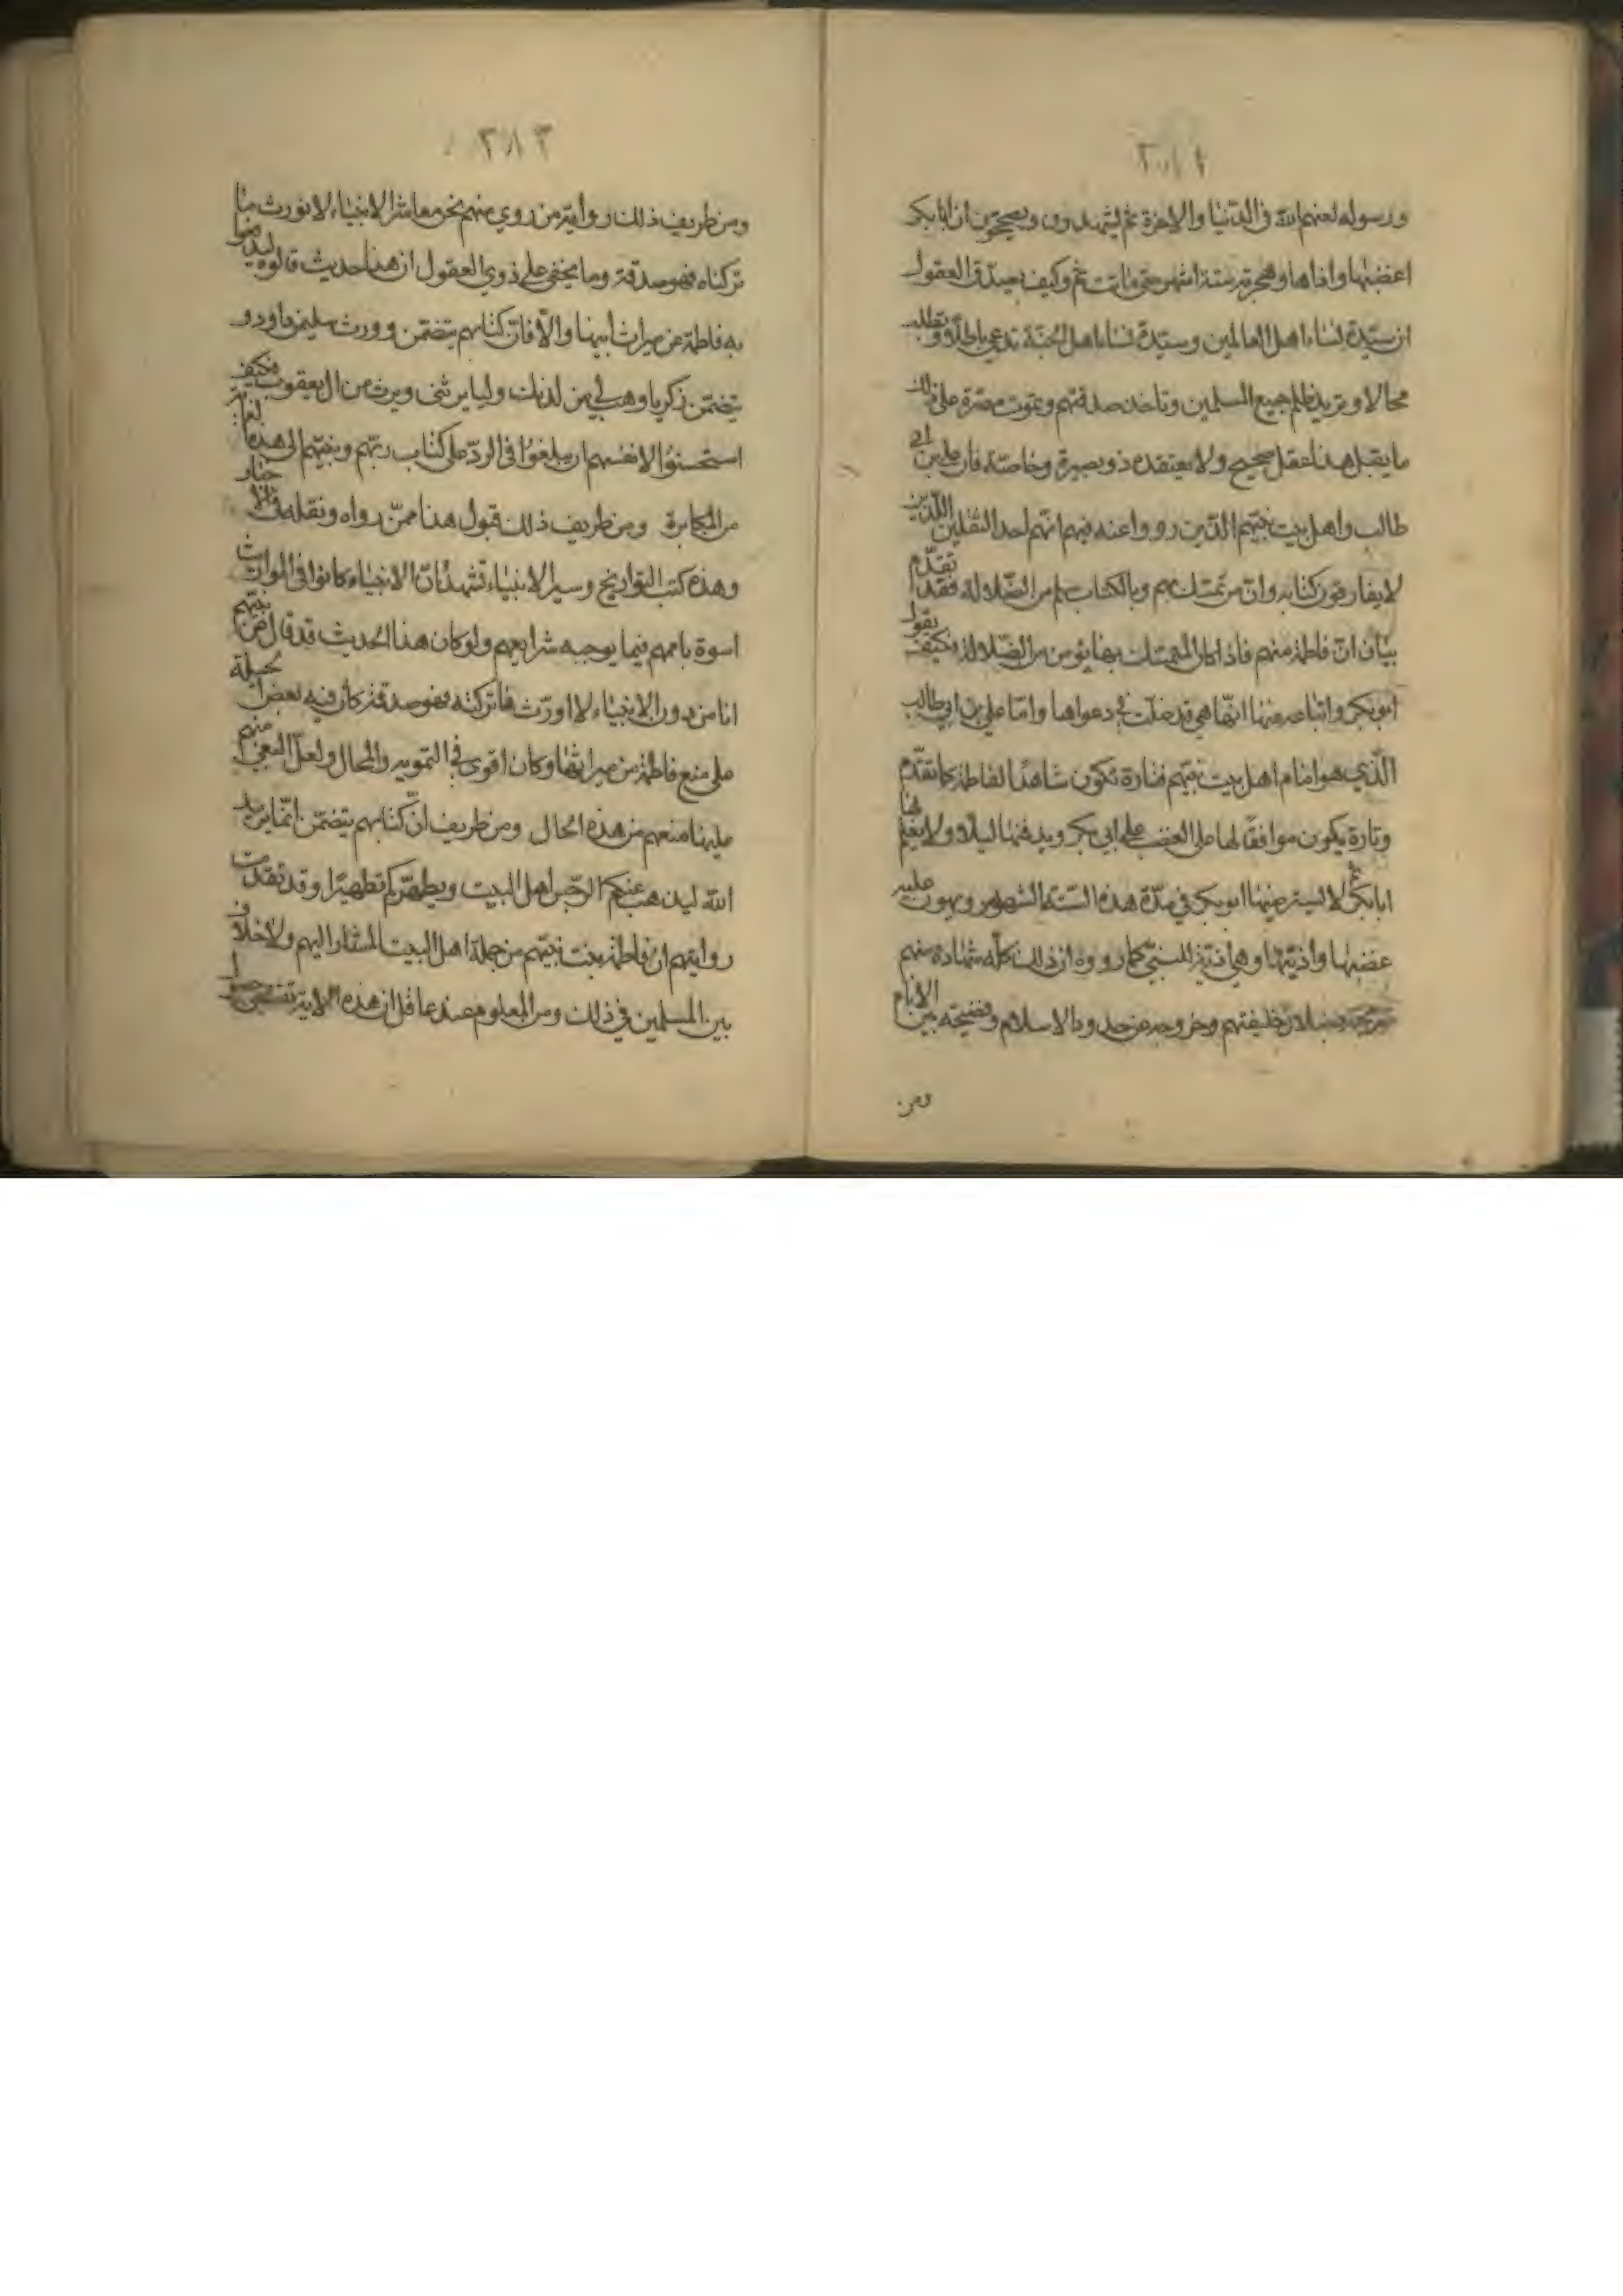 ورسوله لعنهم الله في الدنيا والاخرة ثم يشهدون ويصححون ان ابا بكر
اغضبها واذاها وهجرته ستة اشهر حتى ماتت ثم وكيف يصدق العقول
ان سيدة نساء اهل العالمين وسيدة نساء اهل الجنة تدعي باطلا وتطلب
محالا وتريد ظلم جميع المسلمين وتاخذ صدقتهم وتموت مصرة على ذلك
ما يقبل هذا عقل صحيح ولا يعتقده ذو بصيرة وخاصة فان علي بن ابي
طالب واهل بيت نبيهم الذين رووا عنه فيهم انهم احد الثقلين اللذين
لا يفارقون كتابه وان من تمسك بهم وبالكتاب سلم من الضلالة فقد تقدم
بيان ان فاطمة منهم فاذا كان المتمسك بها يؤمن من الضلالة فكيف يقول
ابو بكر واتباعه عنها انها هي قد ضلت في دعواها واما علي بن ابي طالب
الذي هو امام اهل بيت نبيهم فتارة تكون شاهدا لفاطمة كما تقدم
وتارة يكون موافقا لها على الغضب على ابي بكر ويدفنها ليلا ولا يعلم بها
ابا بكر ثم لا يسترضيها ابو بكر في مدة هذه الستة الشهور ويهون عليه
غضبها واذيتها وهي اذية للنبي كما رووه ان ذلك كله شهادة منهم
بضلال خليفتهم وخروجه عن حدود الاسلام وفضيحته بين الانام
ومن
٣١٣
ومن طريف ذلك رواية من روي منهم نحن معاشر الانبياء لا نورث ما
تركناه فهو صدقة وما يخفى على ذوي العقول ان هذا حديث قالوه ليدفعوا
به فاطمة عن ميراث ابيها والا فان كتابهم يتضمن وورث سليمن داود و
يتضمن زكريا وهب لي من لدنك وليا يرثني ويرث من ال يعقوب فكيف
استحسنوا لانفسهم ان يبلغوا في الرد على كتاب ربهم ونبيهم الى هذه الغاية
من المكابرة ومن طريف ذلك قبول هذا ممن رواه ونقله
وهذه كتب التواريخ وسير الانبياء تشهد بان الانبياء كانوا في المواريث
اسوة باممهم فيما يوجبه شرايعهم ولو كان هذا الحديث قد قال عن نبيهم
انا من دون الانبياء لا اورث فما تركته فهو صدقة كان فيه بعض الحيلة
على منع فاطمة من ميراثها وكان اقوى في التمويه والمحال ولعل البغي منهم
عليها منعهم من هذه الحال ومن طريف ان كتابهم يتضمن انما يريد
الله ليذهب عنكم الرجس اهل البيت ويطهركم تطهيرا وقد تقدمت
روايتهم ان فاطمة بنت نبيهم من جملة اهل البيت المشار اليهم ولا خلاف
بين المسلمين في ذلك ومن المعلوم عند عاقل ان هذه الاية تقتضي